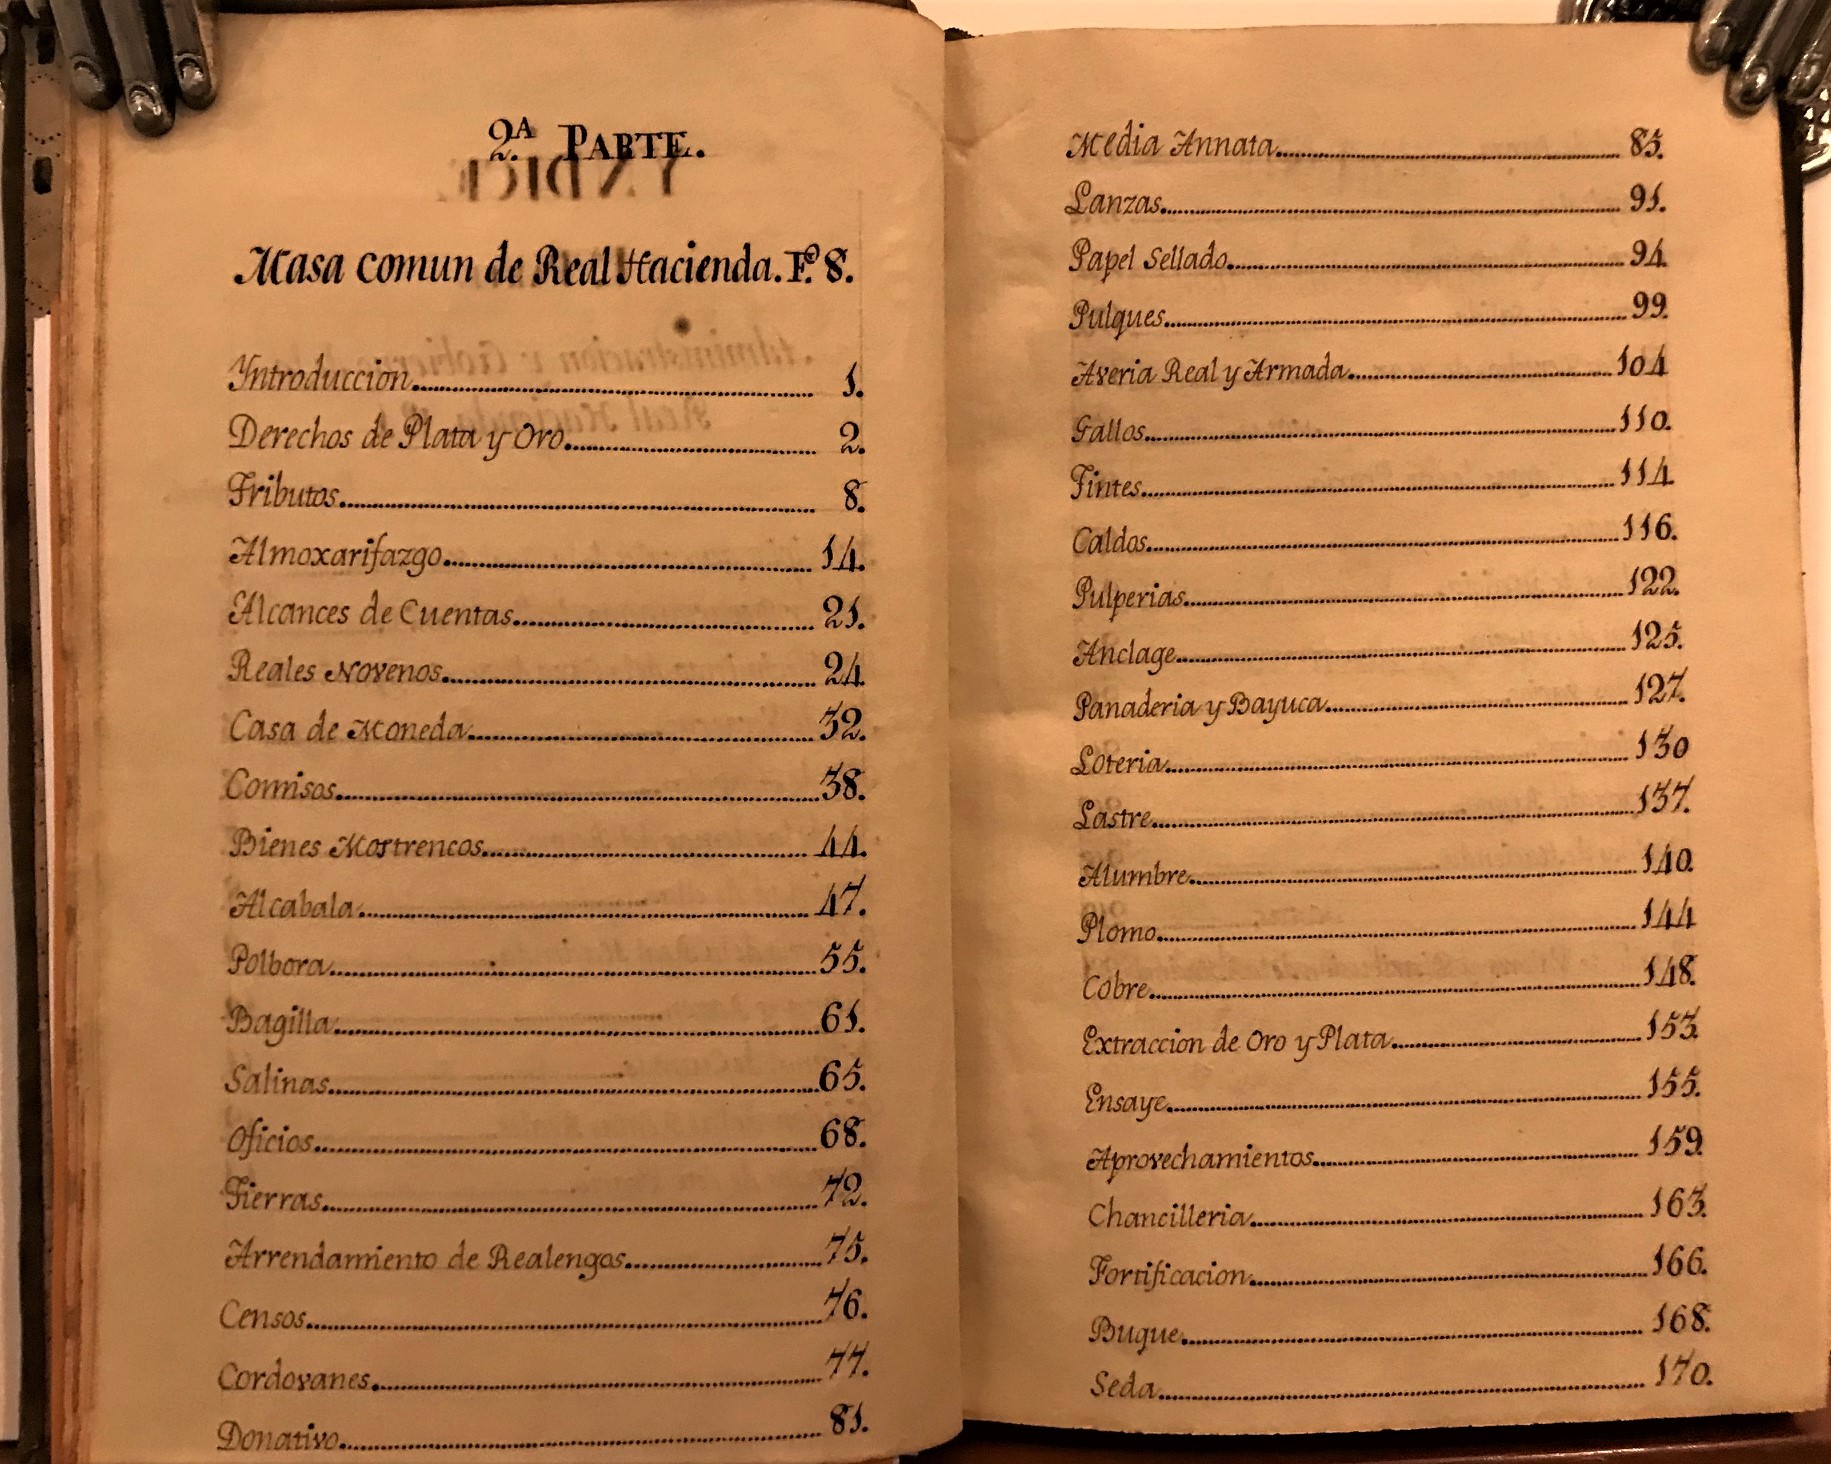 2.ᴬ PARTE.
Masa comun de Real Hacienda. F.º 8.
Yntroduccion 1.
Derechos de Plata y Oro 2.
Tributos 8.
Almoxarifazgo 14.
Alcances de Cuentas 21.
Reales Novenos 24.
Casa de Moneda 32.
Comisos 38.
Bienes Mostrencos 44.
Alcabala 47.
Polbora 55.
Bagilla 61.
Salinas 65.
Oficios 68.
Tierras 72.
Arrendamiento de Realengos 75.
Censos 76.
Cordovanes 77.
Donativo 81.
Media Annata 85.
Lanzas 91.
Papel Sellado 94
Pulques 99.
Averia Real y Armada 104
Gallos 110.
Tintes 114.
Caldos 116.
Pulperias 122.
Anclage 125.
Panaderia y Bayuca 127.
Loteria 130
Lastre 137.
Alumbre 140.
Plomo 144
Cobre 148.
Extraccion de Oro y Plata 153.
Ensaye 155.
Aprovechamientos 159.
Chancilleria 163.
Fortificacion 166.
Buque 168.
Seda 170.